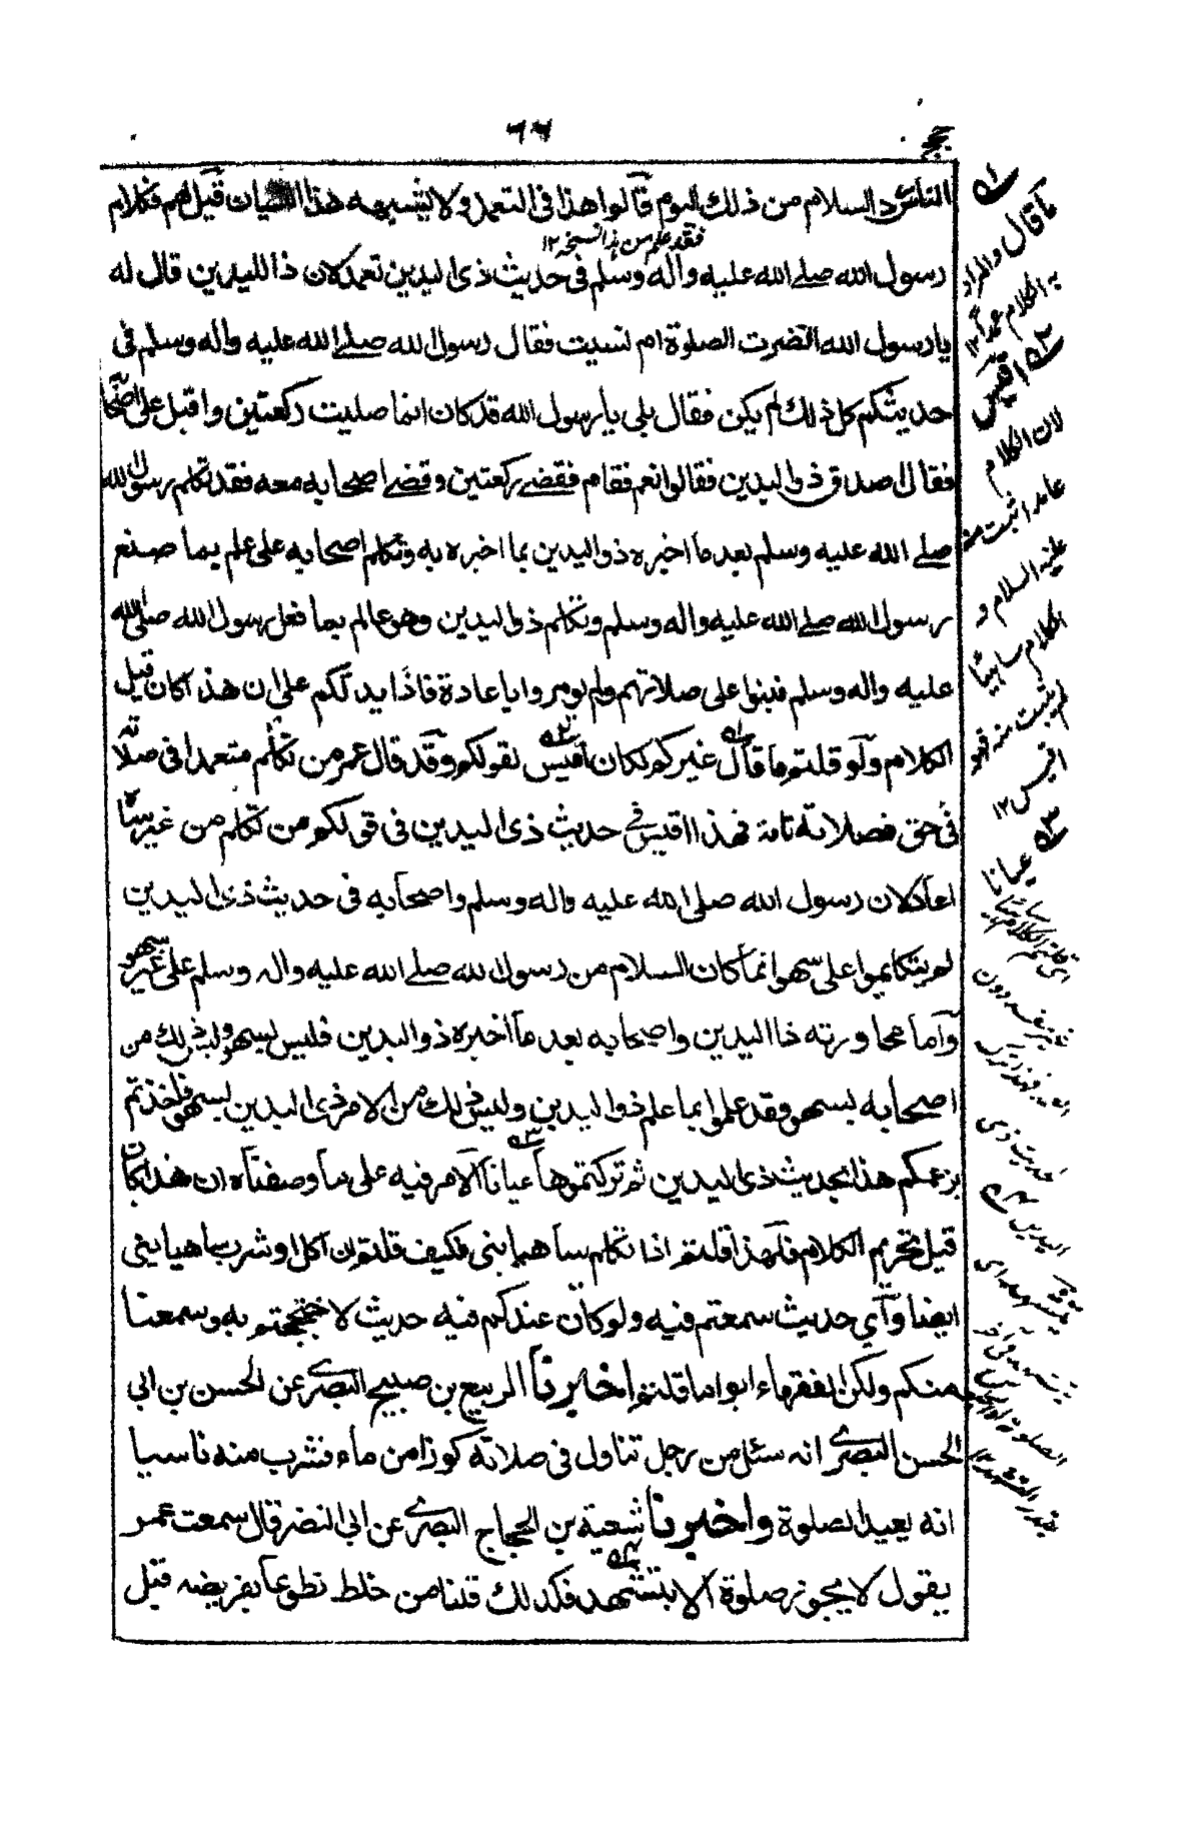 ٦٦
حج
الناس والسلام من ذلك اليوم قالوا هذا فى التعمد ولا يشبهه هذا النسيان قيل لهم فكلام
فقد علم من ذا النسخة ١٢
رسول الله صلى الله عليه واله وسلم فى حديث ذى اليدين تعمد كلان ذا لليدين قال له
يا رسول الله اقصرت الصلوة ام نسيت فقال رسول الله صلى الله عليه واله وسلم فى
حديثكم كل ذلك لم يكن فقال بلى يا رسول الله قد كان انما صليت ركعتين واقبل على اصحا
فقال اصدق ذو اليدين فقالوا نعم فقام فقضى ركعتين وقضى اصحابه معه فقد تكلم رسول الله
صلى الله عليه وسلم بعد ما اخبره ذو اليدين بما اخبره به وتكلم اصحابه على علم بما صنع
رسول الله صلى الله عليه واله وسلم وتكلم ذو اليدين وهو عالم بما فعل رسول الله صلى الله
عليه واله وسلم فبنوا على صلاتهم ولم يومروا باعادة فاذا يدلكم على ان هذا كان قبل
الكلام ولو قلتم ما قال غيركم لكان اقيس لقولكم وقد قال عمر من تكلم متعمدا فى صلاته
فى حق فصلاته تامة فهذا اقيس فى حديث ذى اليدين فى قولكم من تكلم من غير سا
اعاد كلان رسول الله صلى الله عليه واله وسلم واصحابه فى حديث ذى اليدين
لم يتكلموا على سهو انما كان السلام من رسول الله صلى الله عليه واله وسلم على غير سهو
واما محاورته ذا اليدين واصحابه بعد ما اخبره ذو اليدين فليس بسهو وليس ذلك من
اصحابه بسهو وقد علموا بما علم ذو اليدين وليس ذلك من الامر ذى اليدين بسهو فاخذتم
بزعمكم هذا بحديث ذى اليدين ثم تركتموها عيانا الامر فيه على ما وصفناه ان هذا كان
قبل تحريم الكلام فلم هذا قلتم اذا تكلم ساهيا بنى فكيف قلتم ان اكل او شرب ساهيا بنى
ايضا واى حديث سمعتم فيه ولو كان عندكم فيه حديث لاحتججتم به وسمعنا
منكم ولكن الفقهاء ابوا ما قلتم اخبرنا الربيع بن صبيح البصرى عن الحسن بن ابى
الحسن البصرى انه سئل من رجل تناول فى صلاته كوزا من ماء فشرب منه ناسيا
انه يعيد الصلوة واخبرنا شعبة بن الحجاج البصرى عن ابى النضر قال سمعت عمر
يقول لا يجوز صلوة الا بتشهد فكذلك قلنا من خلط تطوعا بفريضه قبل
ما قال والمراد
به الكلام عمدا ١٢
اقيس
لان الكلام
عامدا ثبت منه
عليه السلام و
الكلام ساهيا
لم يثبت منه فهو
اقيس ١٢
عيانا
حديث ذى
اليدين